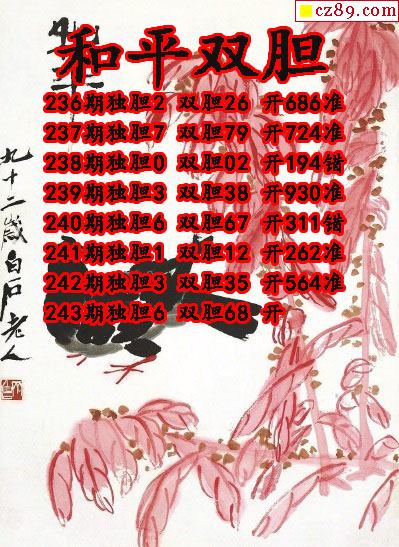 cz89.com
和平双胆
236期独胆2 双胆26 开686准
237期独胆7 双胆79 开724准
238期独胆0 双胆02 开194错
239期独胆3 双胆38 开930准
240期独胆6 双胆67 开311错
241期独胆1 双胆12 开262准
242期独胆3 双胆35 开564准
243期独胆6 双胆68 开
九十二岁白石老人